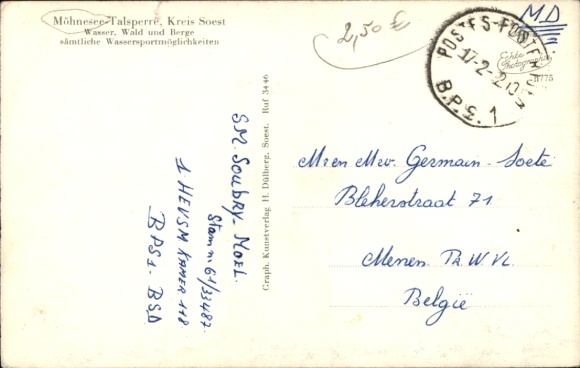 Möhnesee-Talsperre, Kreis Soest
Wasser, Wald und Berge
sämtliche Wassersportmöglichkeiten
2,50 €
MD
POSTES-POSTERIJEN
17-2-
B.P.S. 1
Echte Photographie
Graph. Kunstverlag H. Dülberg, Soest. Ruf 3446
SM. SOUBRY-NOEL.
Stamnr. 61/33487.
1 HEVSM KAMER 118
BPS1. BSD
Mr en Mw. Germain-Soete
Blekerstraat 71
Menen Pr. W. VL.
België